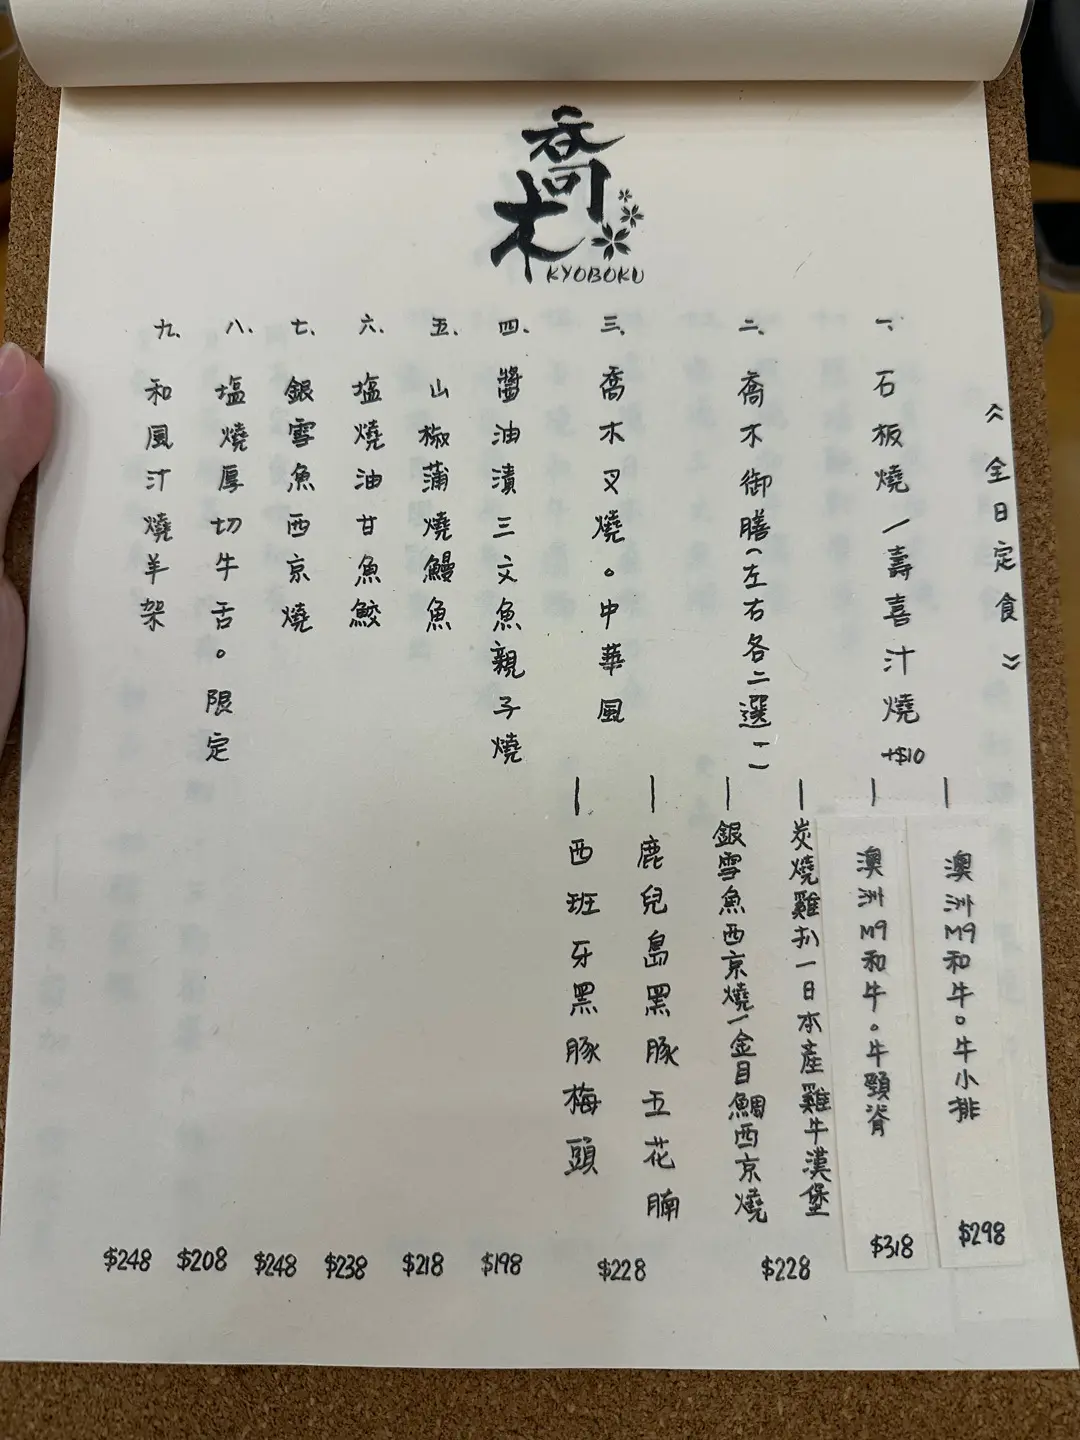 喬木
KYOBOKU
《全日定食》
一、石板燒/壽喜汁燒 +$10
— 澳洲M9和牛。牛小排 $298
— 澳洲M9和牛。牛頸脊 $318
二、喬木御膳(左右各二選一)
— 炭燒雞扒-日本產雞牛漢堡
— 銀雪魚西京燒/金目鯛西京燒
$228
三、喬木叉燒。中華風
— 鹿兒島黑豚五花腩
— 西班牙黑豚梅頭
$228
四、醬油漬三文魚親子燒 $198
五、山椒蒲燒鰻魚 $218
六、塩燒油甘魚鮫 $238
七、銀雪魚西京燒 $248
八、塩燒厚切牛舌。限定 $208
九、和風汁燒羊架 $248